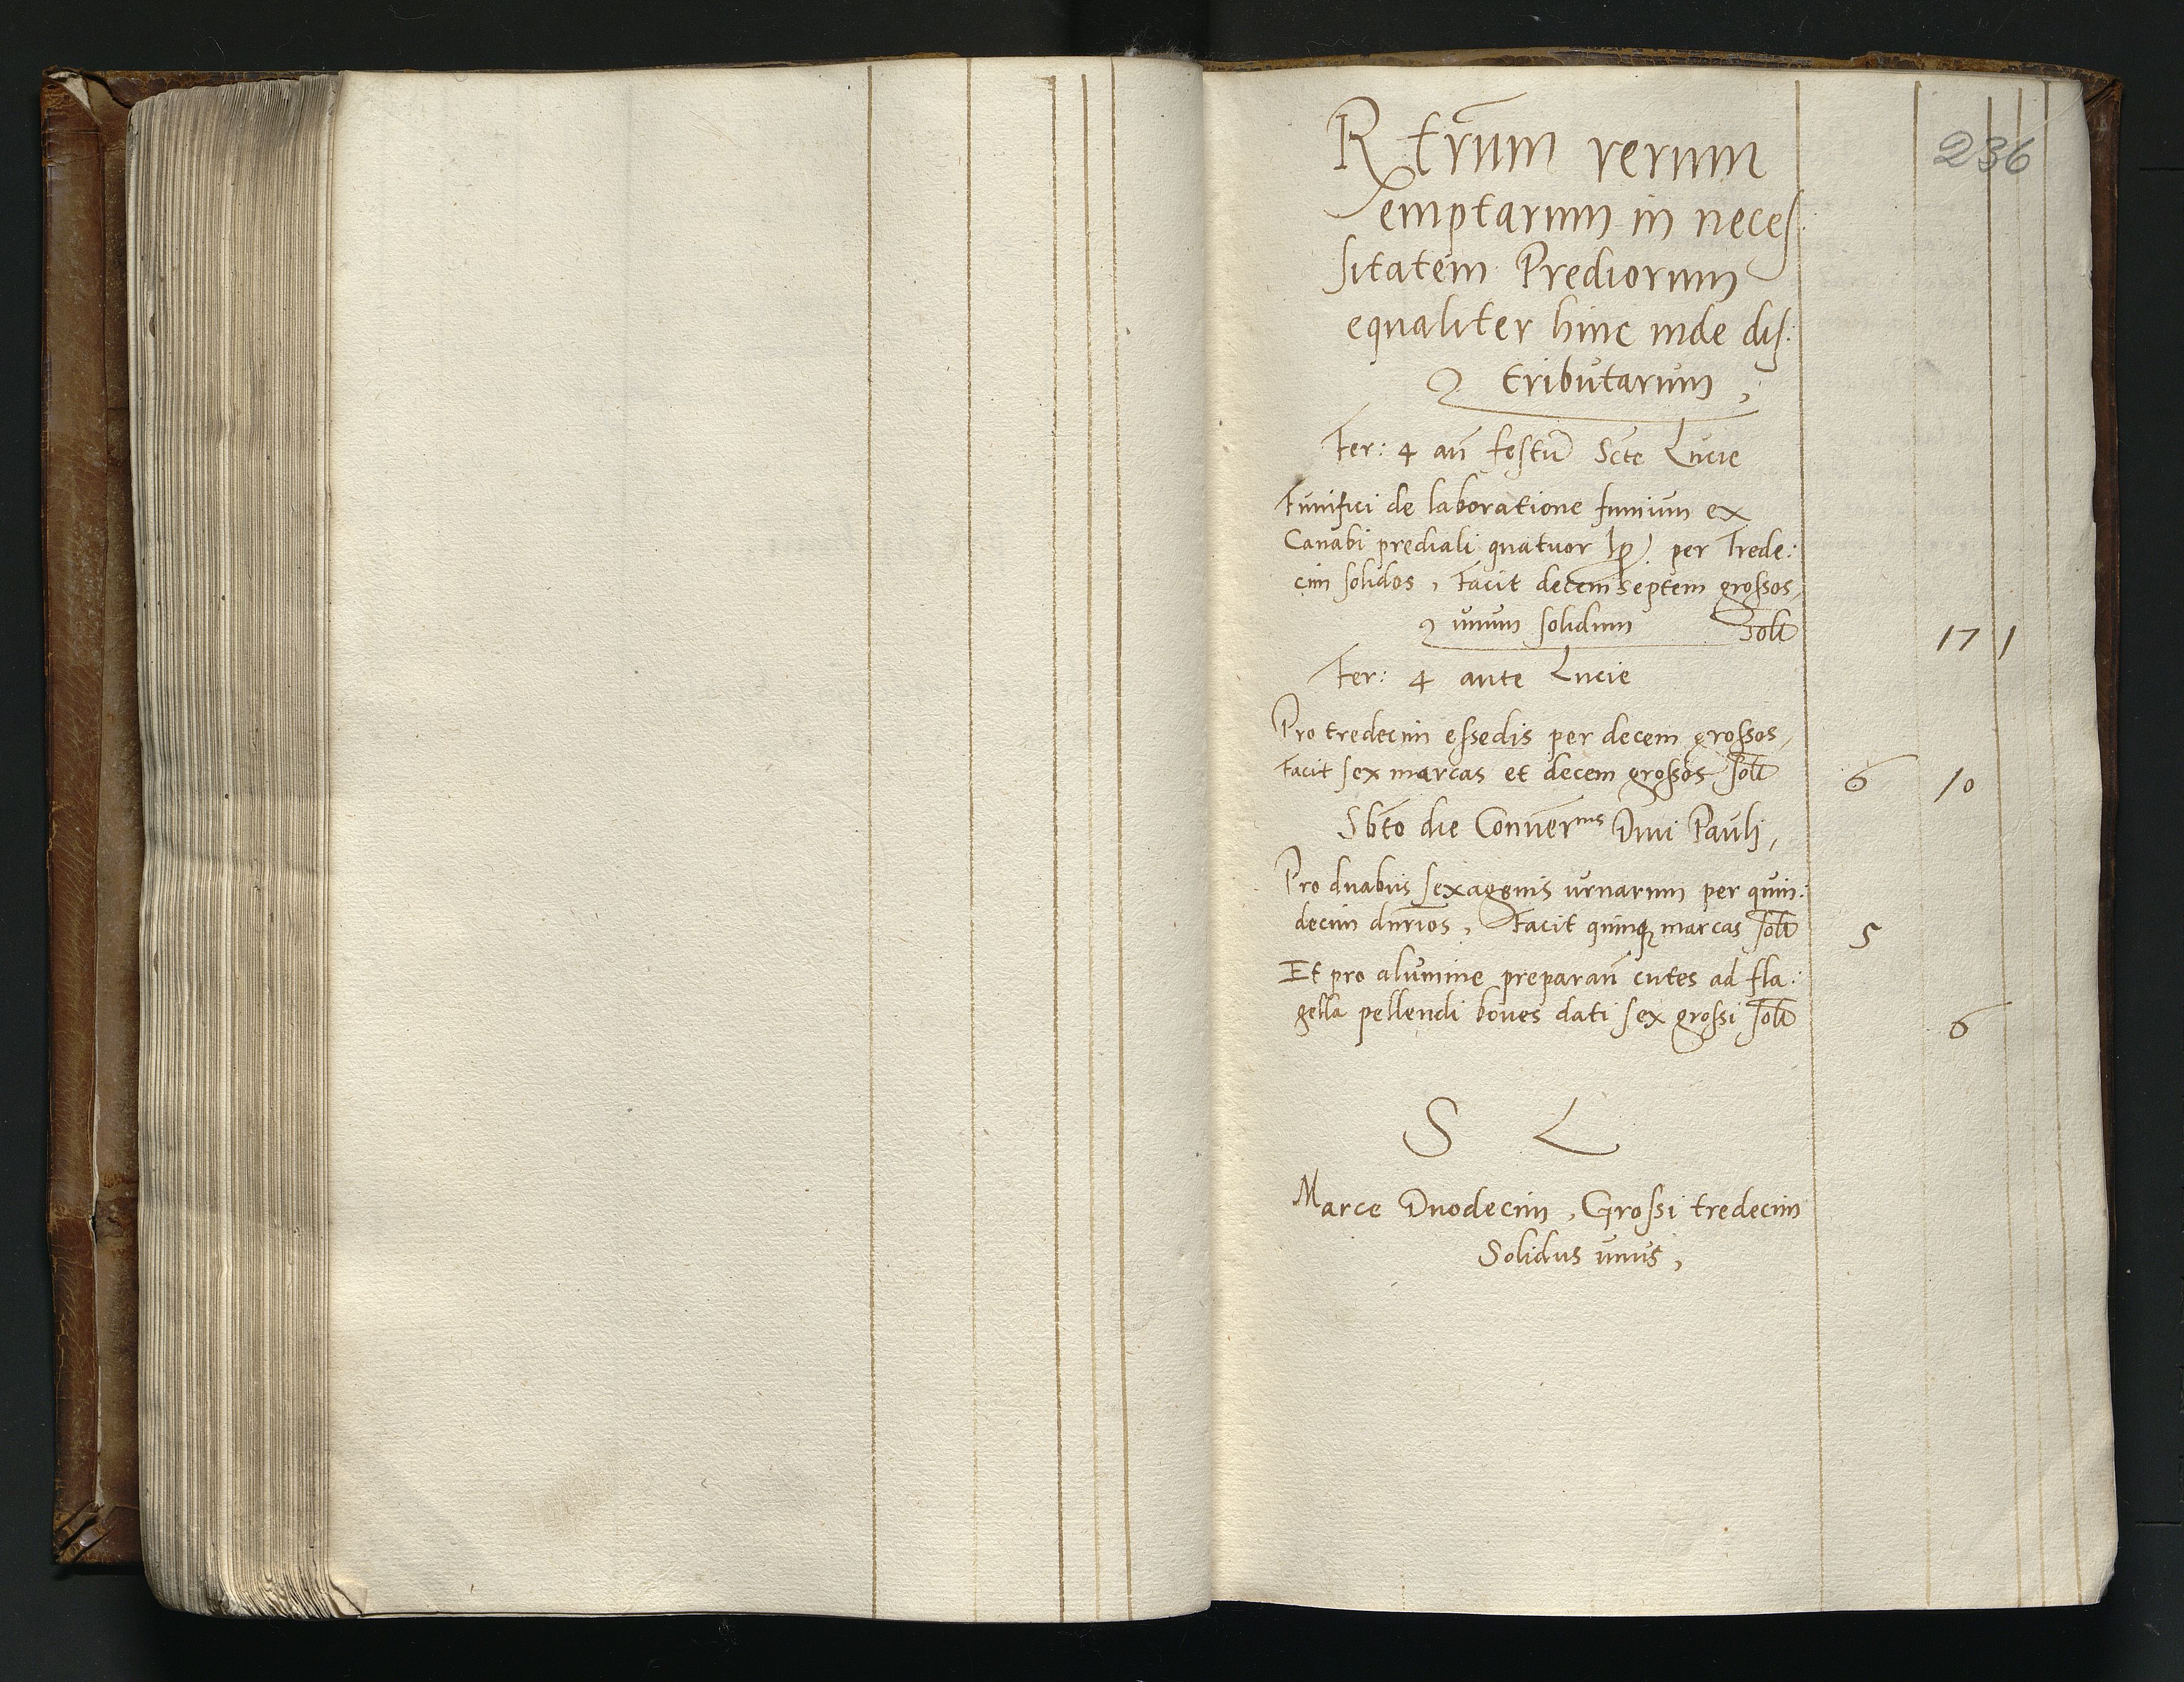 236
R trum rerum
emptarum in neceſ:
ſitatem Prediorum
equaliter hinc inde diſ:
tributarum,
Fer: 4 an̄ feſtu Scte Lucie
Funifici de laboratione funium ex
Canabi prediali quatuor lp per Trede:
cim ſolidos, facit decem septem groſsos,
unum ſolidum ſolt 17 1
Fer: 4 ante Lucie
Pro tredecim eſsedis per decem groſsos,
facit ſex marcas et decem groſsos ſolt 6 10
Sbto die Conuernis Diui Pauli,
Pro duabus ſexagenis urnarum per quin:
decim dnrios, facit quinq marcas ſolt 5
Et pro alumine preparan̄ cutes ad fla:
gella pellendi boues dati ſex groſsi ſolt 6
S L
Marce Duodecim, Groſsi tredecim
Solidus unus,